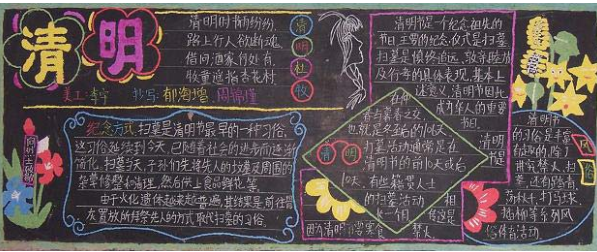 清明
清明时节雨纷纷,
路上行人欲断魂。
借问酒家何处有,
牧童遥指杏花村
清
明
杜
牧
美工:李宁 抄写:郁海增 周锦瑾
纪念方式
扫墓是清明节最早的一种习俗,
这习俗延续到今天,已随着社会的进步而逐渐
简化。扫墓当天,子孙们先将先人的坟墓及周围的
杂草修整和清理,然后供上食品鲜花等。
由于火化遗体越来越普遍,其结果是前往骨
灰置放的拜祭先人的方式取代扫墓的习俗。
清明节是一个纪念祖先的
节日,主要的纪念仪式是扫墓
扫墓是慎终追远、敦亲睦族
及行孝的具体表现,基本上
述意义,清明节因此
成为华人的重要
节日。
清明
是
在
春
也就是冬至后的
扫墓活动通常是在
清明节的前10天或后
10天,有些籍贯人士
的扫墓活动
长达一个月
清
明
清明节
的习俗是丰富
有趣的,除了
讲究禁火、扫
墓,还有踏青、
荡秋千、打马球、
插柳等系列风
俗体育活动
风
俗